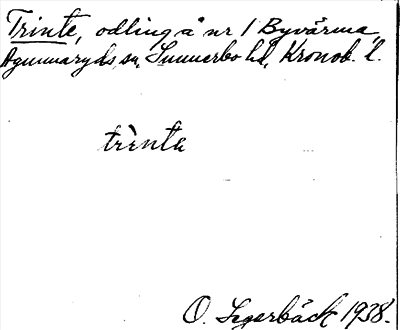 Trinte, odling å nr 1 Byvärma,
Agunnaryds sn, Sunnerbo hd, Kronob. l.
trìnta
O. Segerbäck 1938.